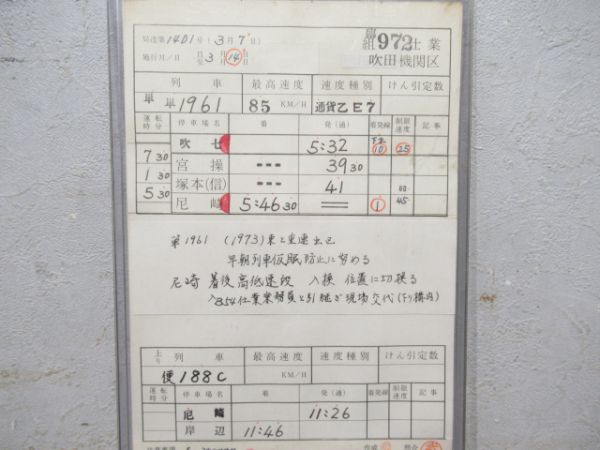 局達第1401号(3月7日)
臨組 972 仕業
施行月/日 自至 3月14日
吹田機関区
列車 最高速度 速度種別 けん引定数
単 単1961 85 KM/H 通貨乙E7
運転時分 停車場名 着 発(通) 着発線 制限速度 記事
吹 5:32 10 25
7 30 宮操 --- 39 30
1 30 塚本(信) --- 41 60
5 30 尼崎 5:46 30 == 1 45
第1961 (1973)東と重連出区
早朝列車仮眠防止に努める
尼崎 着後高低速段 入換 位置に切換る
854仕業乗務員と引継ぎ現場交代(下り構内)
上り 列車 最高速度 速度種別 けん引定数
便188C KM/H
運転時分 停車場名 着 発(通) 着発線 制限速度 記事
尼崎 11:26
岸辺 11:46